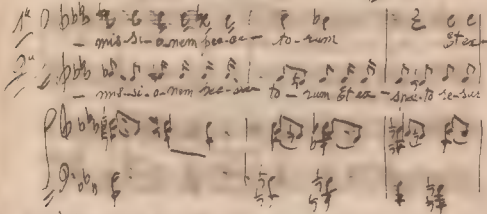 1ª - mis-si-o-nem pec-ca- to-rum Et ex-
2ª - mis-si-o-nem pec-ca- to-rum Et ex- spec-to re-sur